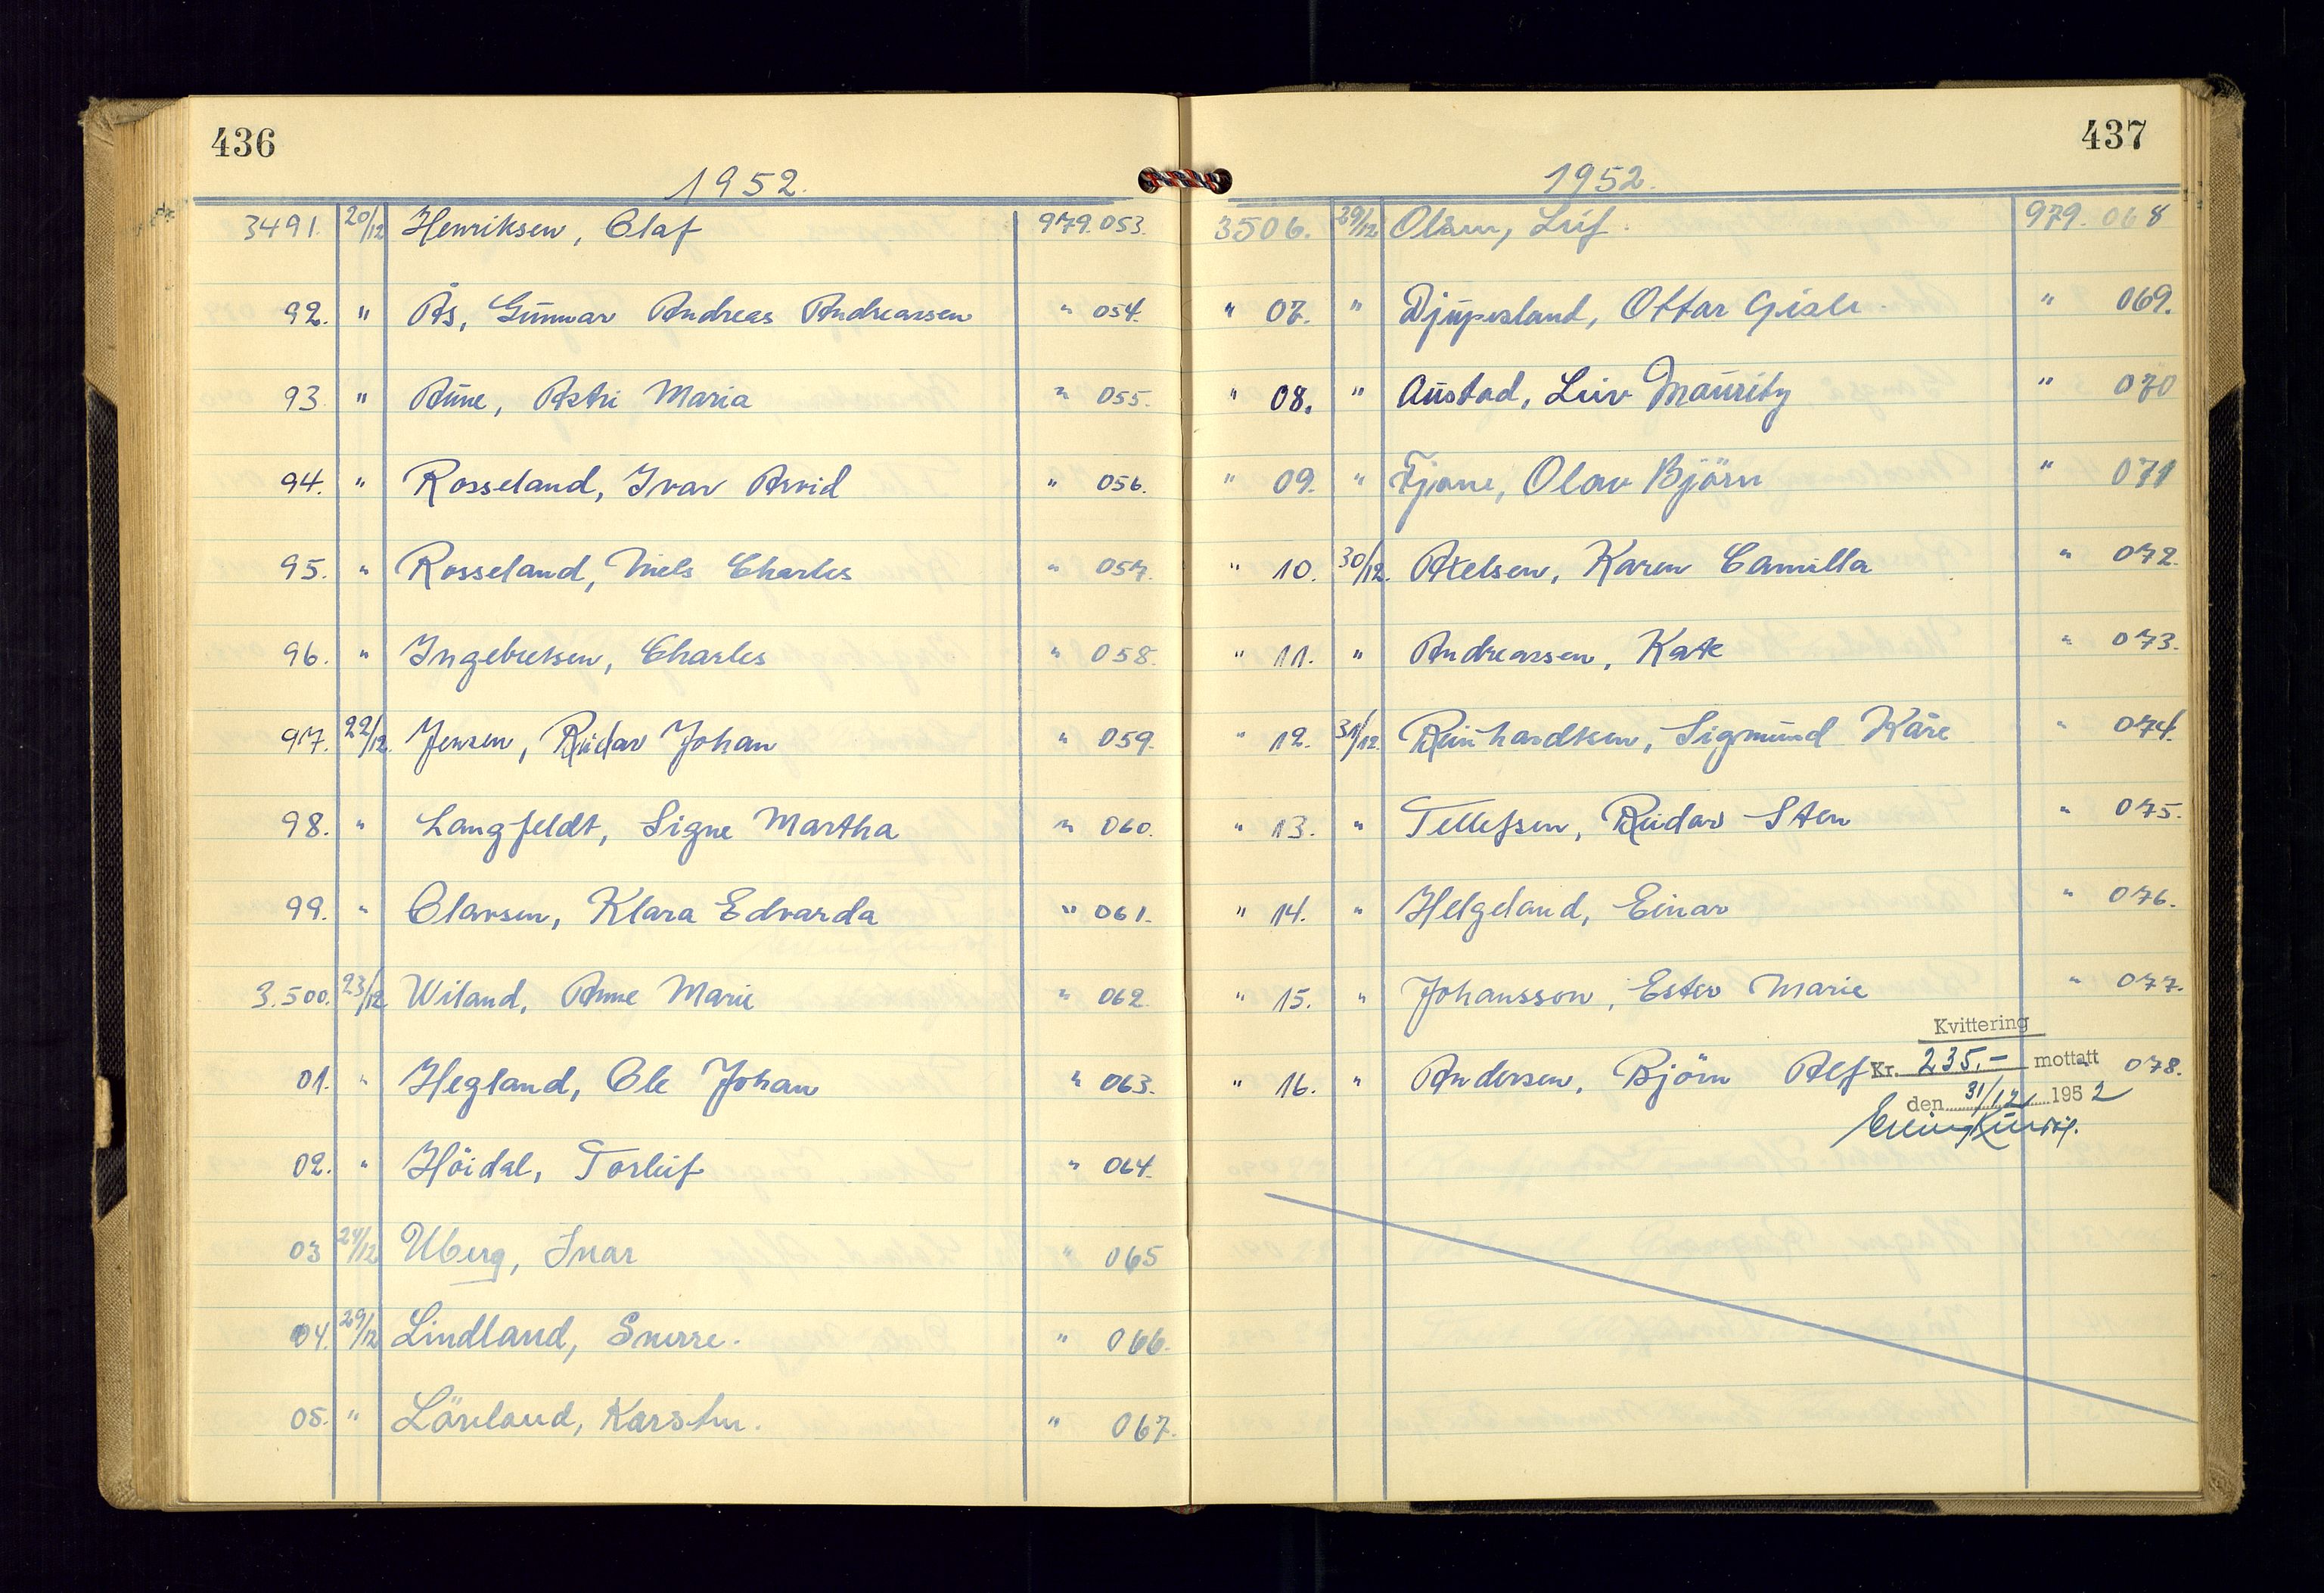 436
1952.
3491. 20/12 Henriksen, Olaf 979.053.
92. " Ås, Gunnar Andreas Andreassen " 054.
93. " Aune, Astri Maria " 055.
94. " Rosseland, Ivar Arvid " 056.
95. " Rosseland, Niels Charles " 057.
96. " Ingebretsen, Charles " 058.
97. 22/12. Jensen, Reidar Johan " 059.
98. " Langfeldt, Signe Martha " 060.
99. " Olavsen, Klara Edvarda " 061.
3.500. 23/12 Wiland, Anne Marie " 062.
01. " Hegland, Ole Johan " 063.
02. " Höidal, Torleif " 064.
03 24/12 Uberg, Ivar " 065
04. 29/12 Lindland, Snorre. " 066.
05. " Löreland, Karsten. " 067.
437
1952.
3506. 29/12 Olsen, Leif. 979.068
" 07. " Djupesland, Ottar Gisle. " 069.
" 08. " Austad, Leiv Mauritz " 070
" 09. " Fjane, Olav Björn " 071
" 10. 30/12. Axelsen, Karen Camilla " 072.
" 11. " Andreassen, Kate " 073.
" 12. 31/12. Reinhardtsen, Sigmund Kåre " 074.
" 13. " Tellefsen, Reidar Sten " 075.
" 14. " Helgeland, Einar " 076.
" 15. " Johansson, Ester Marie " 077.
Kvittering
" 16. " Andersen, Björn Alf Kr. 235,- mottatt 078.
den 31/12 1952